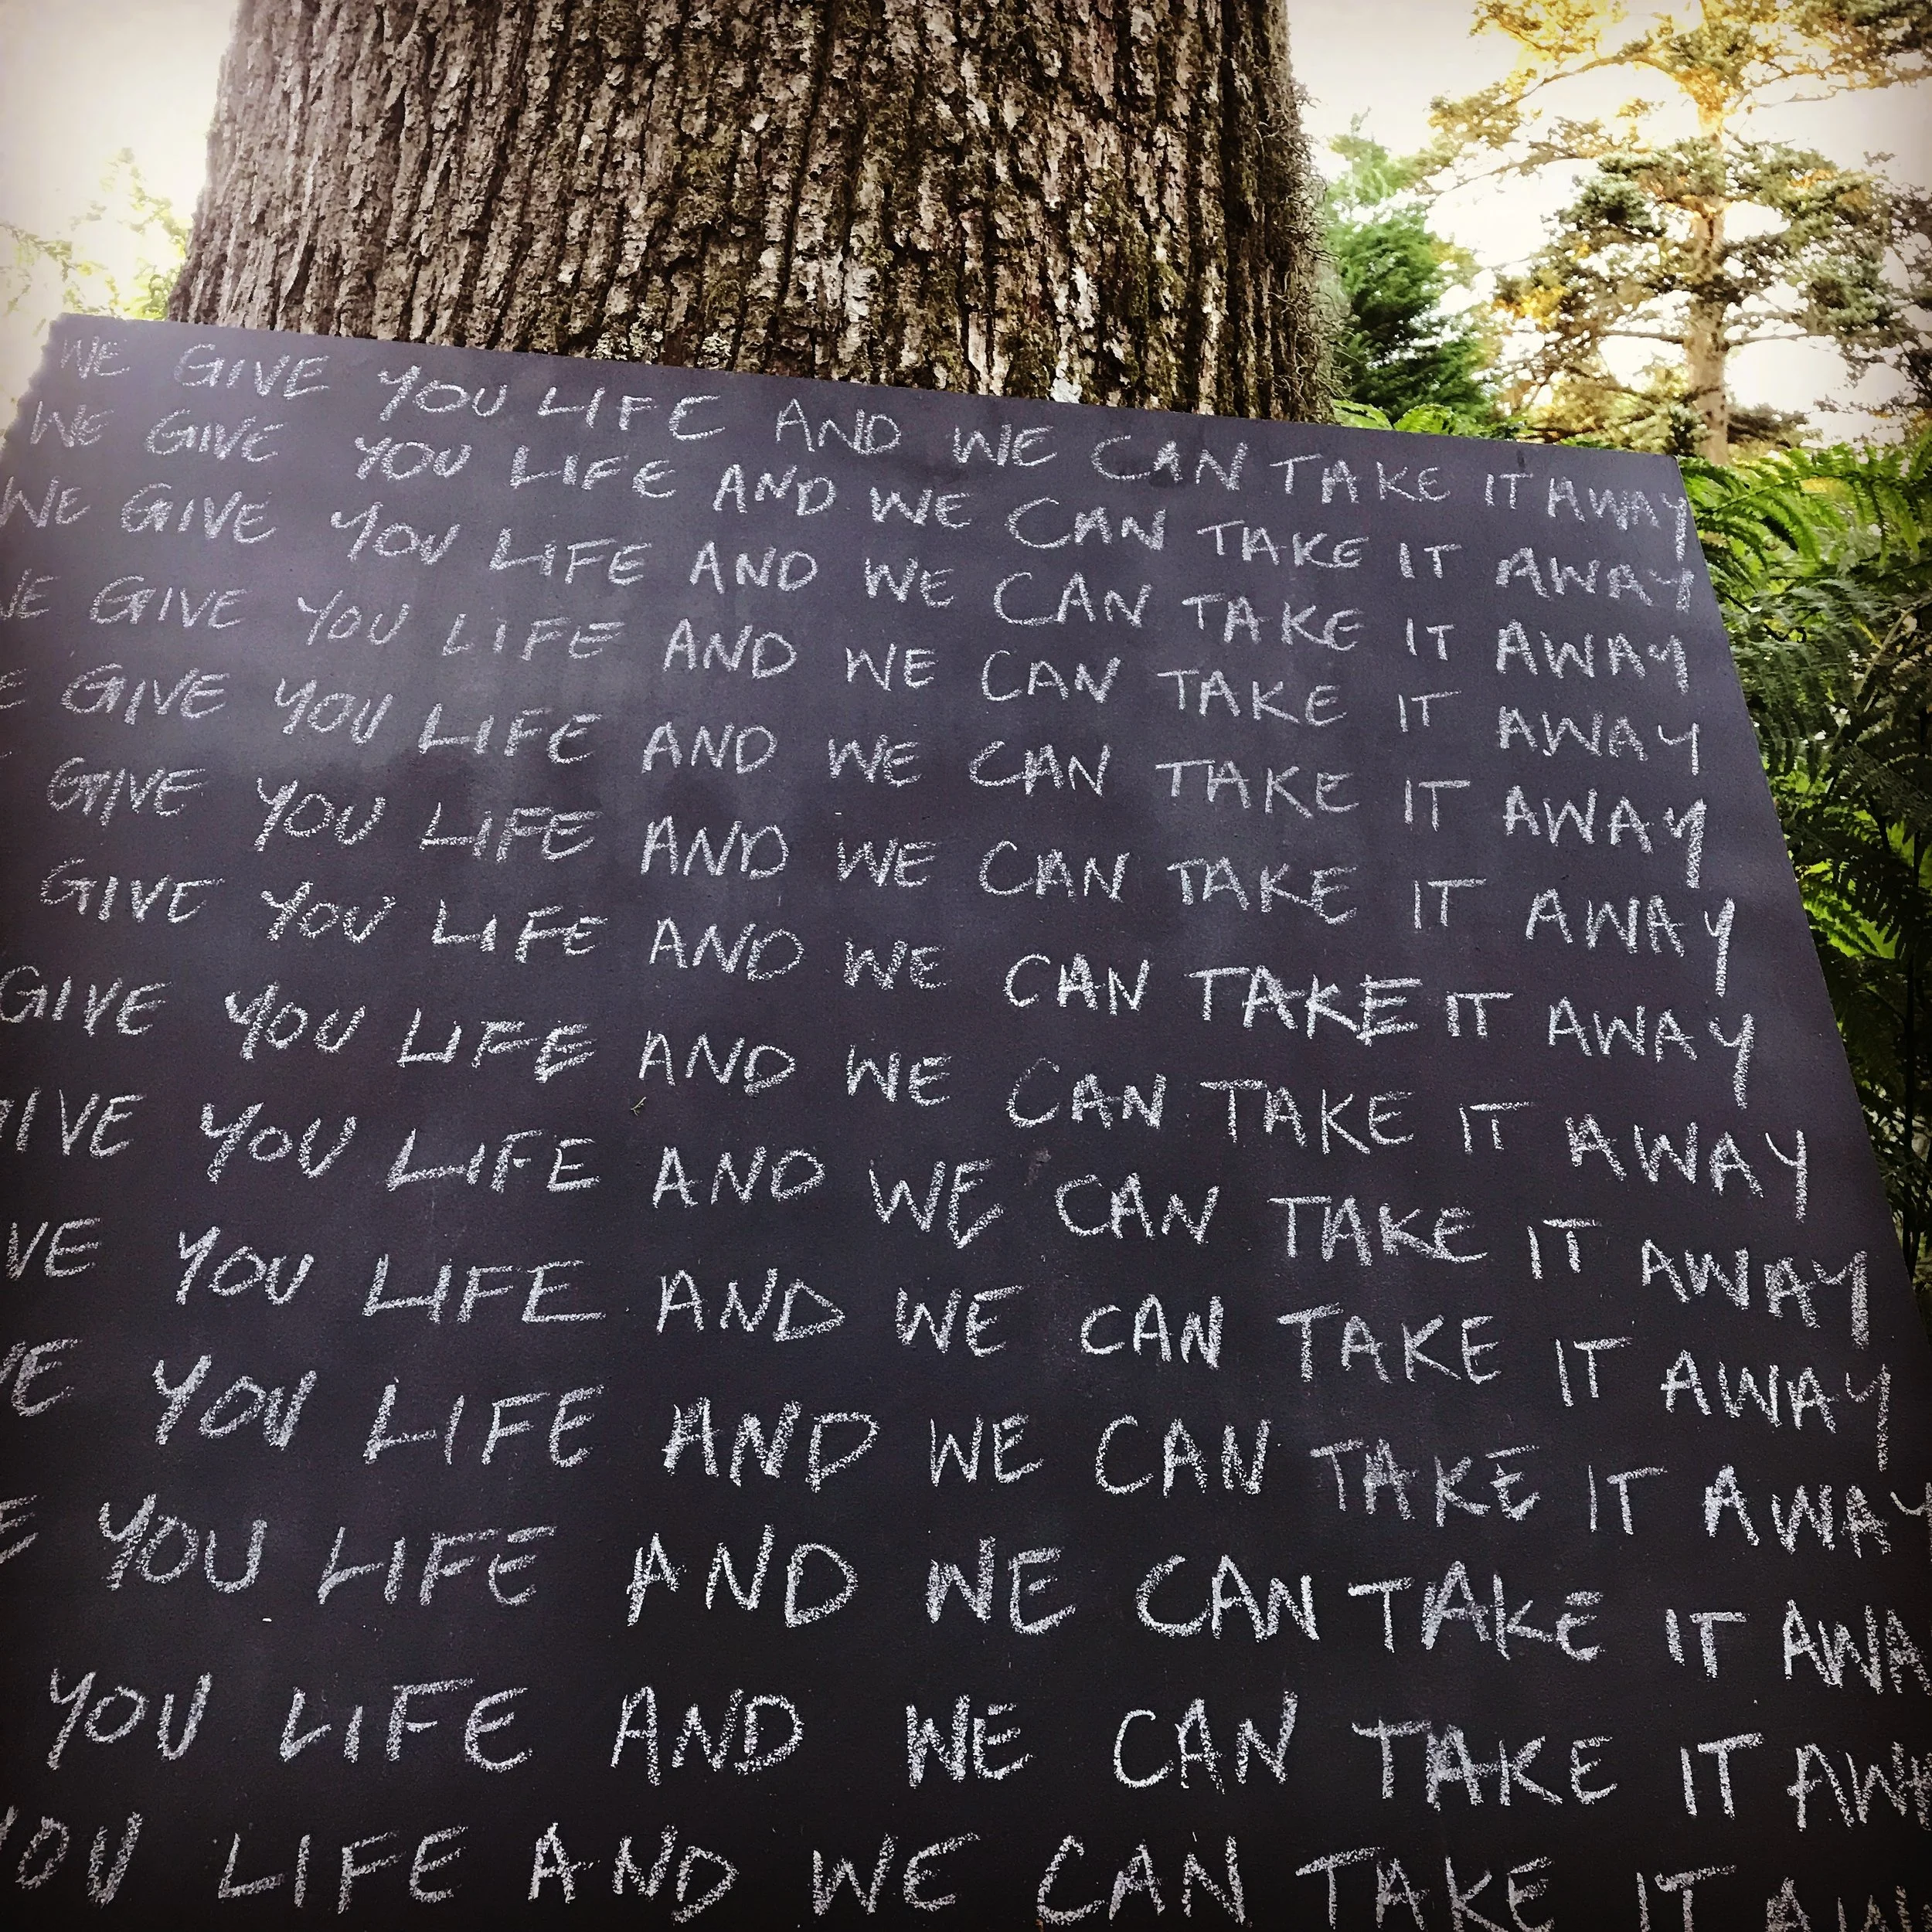 WE GIVE YOU LIFE AND WE CAN TAKE IT AWAY
WE GIVE YOU LIFE AND WE CAN TAKE IT AWAY
WE GIVE YOU LIFE AND WE CAN TAKE IT AWAY
WE GIVE YOU LIFE AND WE CAN TAKE IT AWAY
E GIVE YOU LIFE AND WE CAN TAKE IT AWAY
GIVE YOU LIFE AND WE CAN TAKE IT AWAY
GIVE YOU LIFE AND WE CAN TAKE IT AWAY
GIVE YOU LIFE AND WE CAN TAKE IT AWAY
GIVE YOU LIFE AND WE CAN TAKE IT AWAY
VE YOU LIFE AND WE CAN TAKE IT AWAY
VE YOU LIFE AND WE CAN TAKE IT AWAY
E YOU LIFE AND WE CAN TAKE IT AWA
YOU LIFE AND WE CAN TAKE IT AWA
YOU LIFE AND WE CAN TAKE IT AW